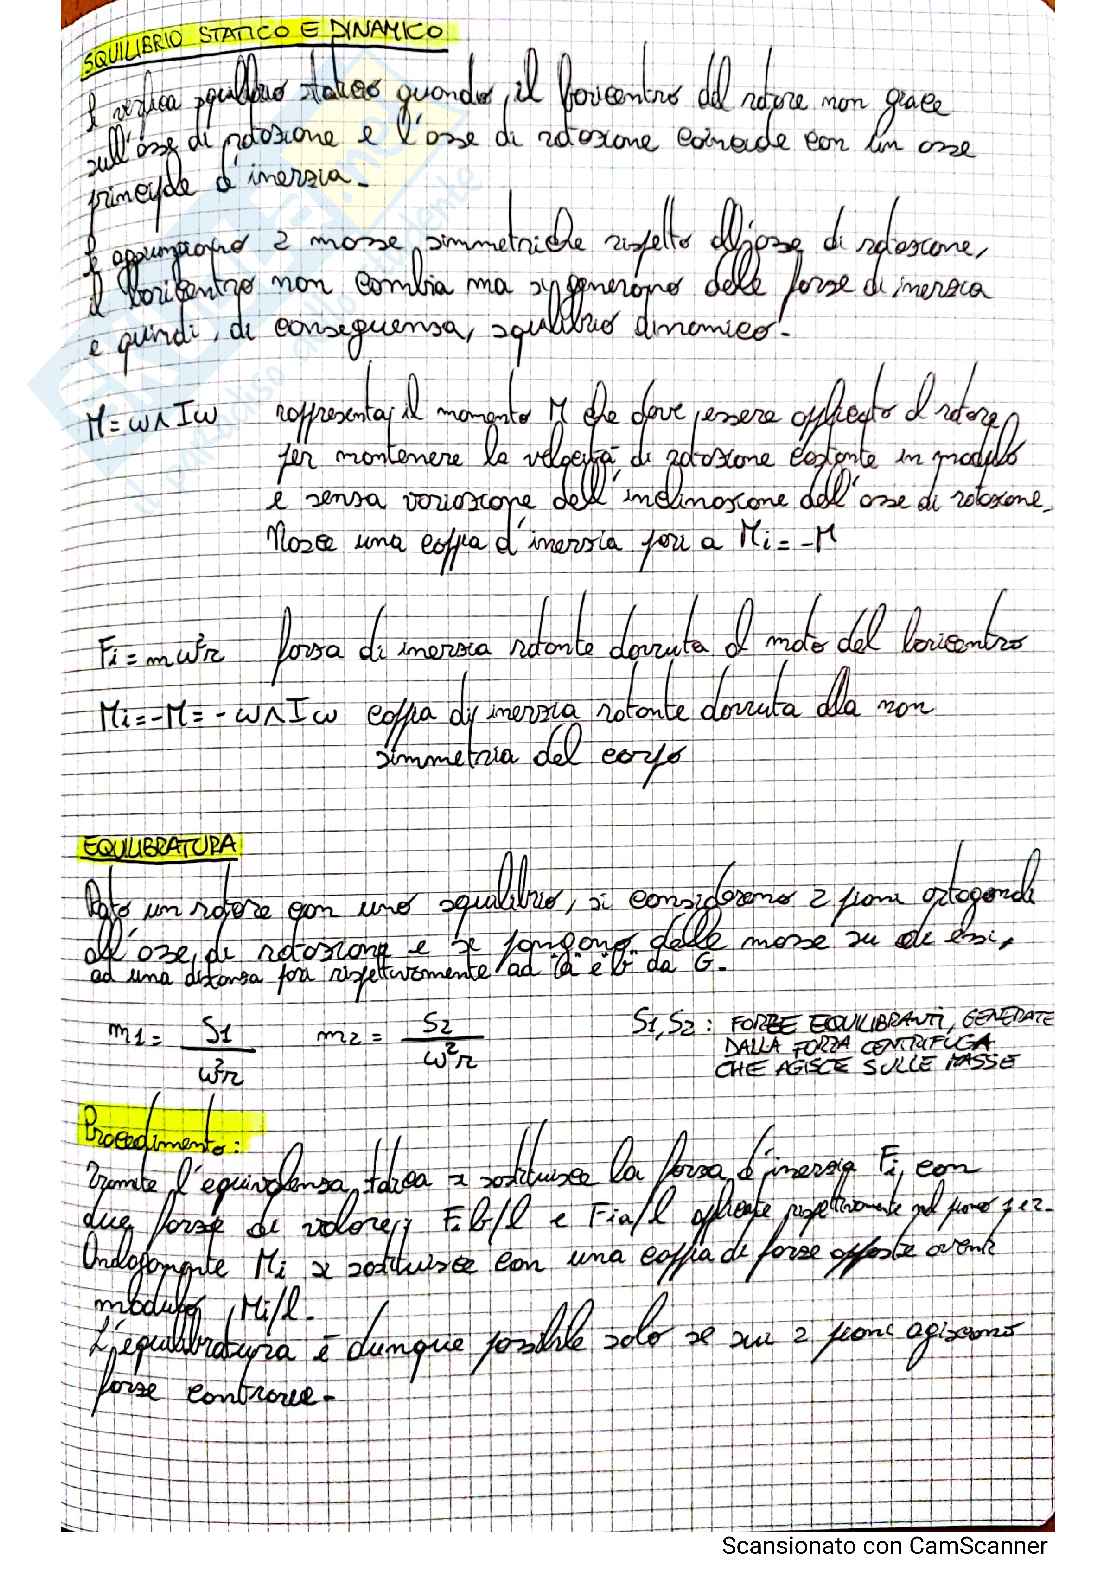 SQUILIBRIO STATICO E DINAMICO
Si verifica squilibrio statico quando il baricentro del rotore non giace
sull'asse di rotazione e l'asse di rotazione coincide con un asse
principale d'inerzia.
Se aggiungiamo 2 masse simmetriche rispetto all'asse di rotazione,
il baricentro non cambia ma si generano delle forze di inerzia
e quindi, di conseguenza, squilibrio dinamico.
M = ω∧Iω rappresenta il momento M che deve essere applicato al rotore
per mantenere la velocità di rotazione costante in modulo
e senza variazione dell'inclinazione dell'asse di rotazione.
Nasce una coppia d'inerzia pari a Mi = -M
Fi = mω²r forza di inerzia rotante dovuta al moto del baricentro
Mi = -M = -ω∧Iω coppia di inerzia rotante dovuta alla non
simmetria del corpo
EQUILIBRATURA
Dato un rotore con uno squilibrio, si considerano 2 piani ortogonali
all'asse di rotazione e si pongono delle masse su di essi,
ad una distanza pari rispettivamente ad "a" e "b" da G.
m1 = S1/ω²r m2 = S2/ω²r S1, S2 : FORZE EQUILIBRANTI, GENERATE
DALLA FORZA CENTRIFUGA
CHE AGISCE SULLE MASSE
Procedimento:
Tramite l'equivalenza statica si sostituisce la forza d'inerzia Fi con
due forze di valore Fi b/l e Fi a/l applicate rispettivamente nel piano 1 e 2.
Analogamente Mi si sostituisce con una coppia di forze opposte aventi
modulo Mi/l.
L'equilibratura è dunque possibile solo se sui 2 piani agiscono
forze contrarie.
Scansionato con CamScanner